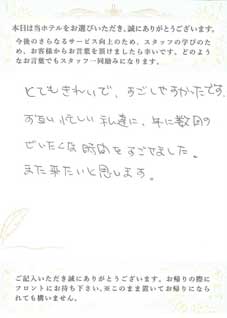 本日は当ホテルをお選びいただき、誠にありがとうございます。
今後のさらなるサービス向上のため、スタッフの学びのため、
お客様からお言葉を頂けましたら幸いです。どのような
お言葉でもスタッフ一同励みになります。
とてもきれいで、すごしやすかったです。
お互い忙しい私達に、年に数回の
ぜいたくな時間をすごせました。
また来たいと思います。
ご記入いただき誠にありがとうございます。お帰りの際に
フロントにお持ち下さい。※このまま置いてお帰りになら
れても構いません。